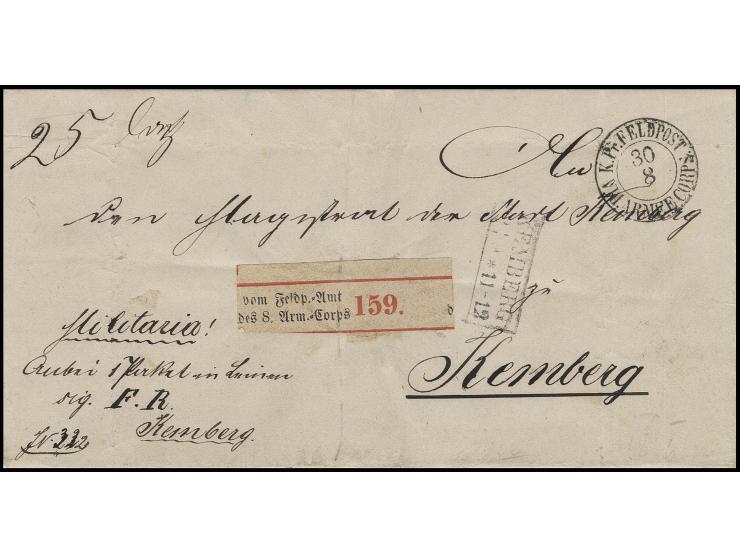 25 Loth
K. Pr. FELDPOST
30
8
ARMEE CORPS
An
den Magistrat der Stadt Kemberg
zu
Kemberg
KEMBERG
* 11-12
vom Feldp.-Amt
des 8. Arm.-Corps 159.
Militaria!
Anbei 1 Paket in Leinen
sig. F. R.
Kemberg.